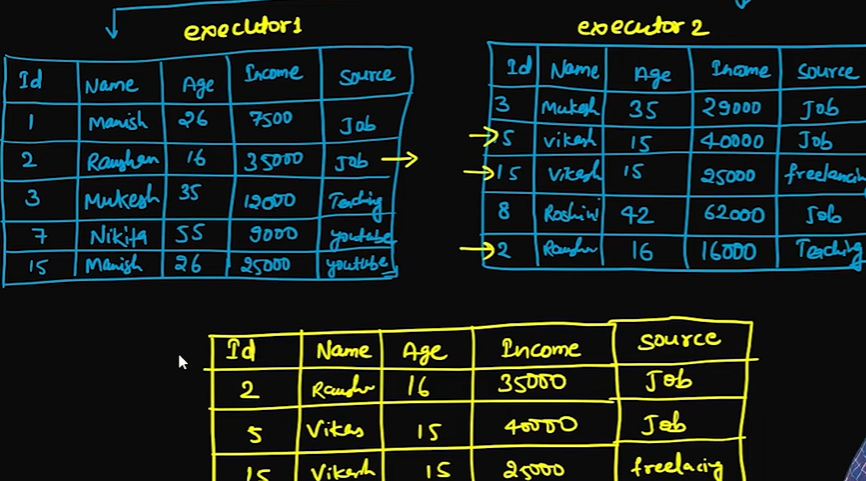 executor1
Id Name Age Income Source
1 Manish 26 7500 Job
2 Raushan 16 35000 Job
3 Mukesh 35 12000 Teaching
7 Nikita 55 9000 youtube
15 Manish 26 25000 youtube
executor 2
Id Name Age Income Source
3 Mukesh 35 29000 Job
5 vikesh 15 40000 Job
15 Vikesh 15 25000 freelancin
8 Roshini 42 62000 Job
2 16 16000 Teaching
Id Name Age Income Source
2 16 35000 Job
5 Vikas 15 40000 Job
15 Vikesh 15 25000 freelacing